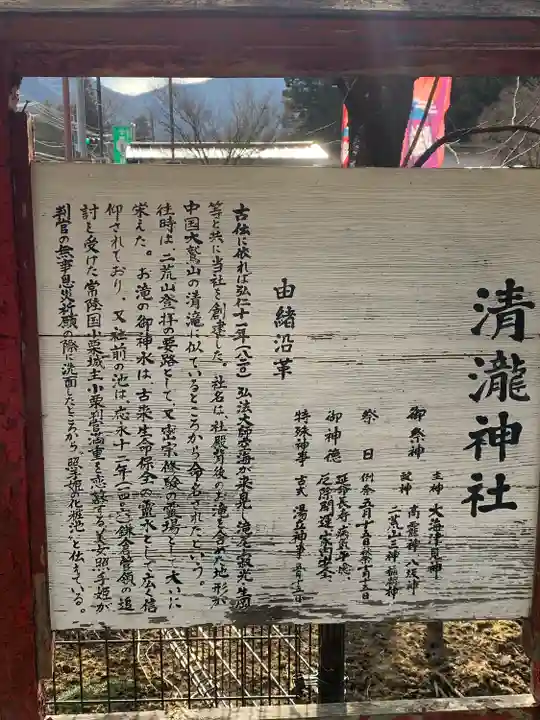 清瀧神社
御祭神 主神 大海津見神
配神 高龗神 八坂神
二荒山三神 稲荷神
祭日 例祭
御神徳 延命長寿
厄除開運 家内安全
特殊神事 古式 湯立神事
由緒沿革
古伝に依れば弘仁十一年(八二〇)弘法大師空海が来晃し、滝尾の寂光、生岡
等と共に当社を創建した。社名は、社殿背後のお滝を含めた地形が
中国大鷲山の清滝に似ているところから命名されたという。
往時は、二荒山登拝の要路として、又密宗修験の霊場として大いに
栄えた。お滝の御神水は、古来生命保全の霊水として広く信
仰されており、又社前の池は、応永十一年(一四〇四)鎌倉管領の追
討を受けた常陸国小栗城主小栗判官満重を恋慕する美女照手姫が
判官の無事息災祈願の際に洗面したところから"照手姫の化粧池"と伝えている。